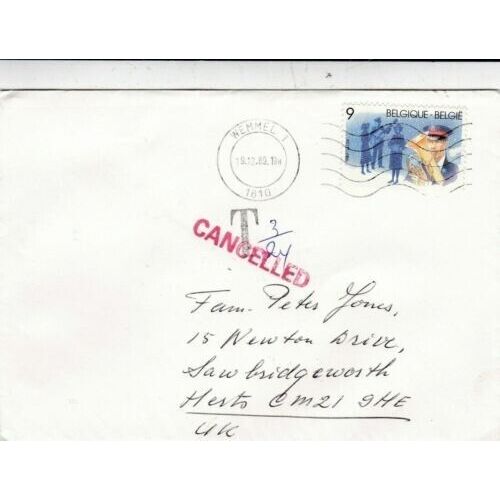 9 BELGIQUE - BELGIË
WEMMEL 1
19.12.89.19H
1810
T 3/24
CANCELLED
Fam. Peter Jones,
15 Newton Drive,
Sawbridgeworth
Herts CM21 9HE
UK